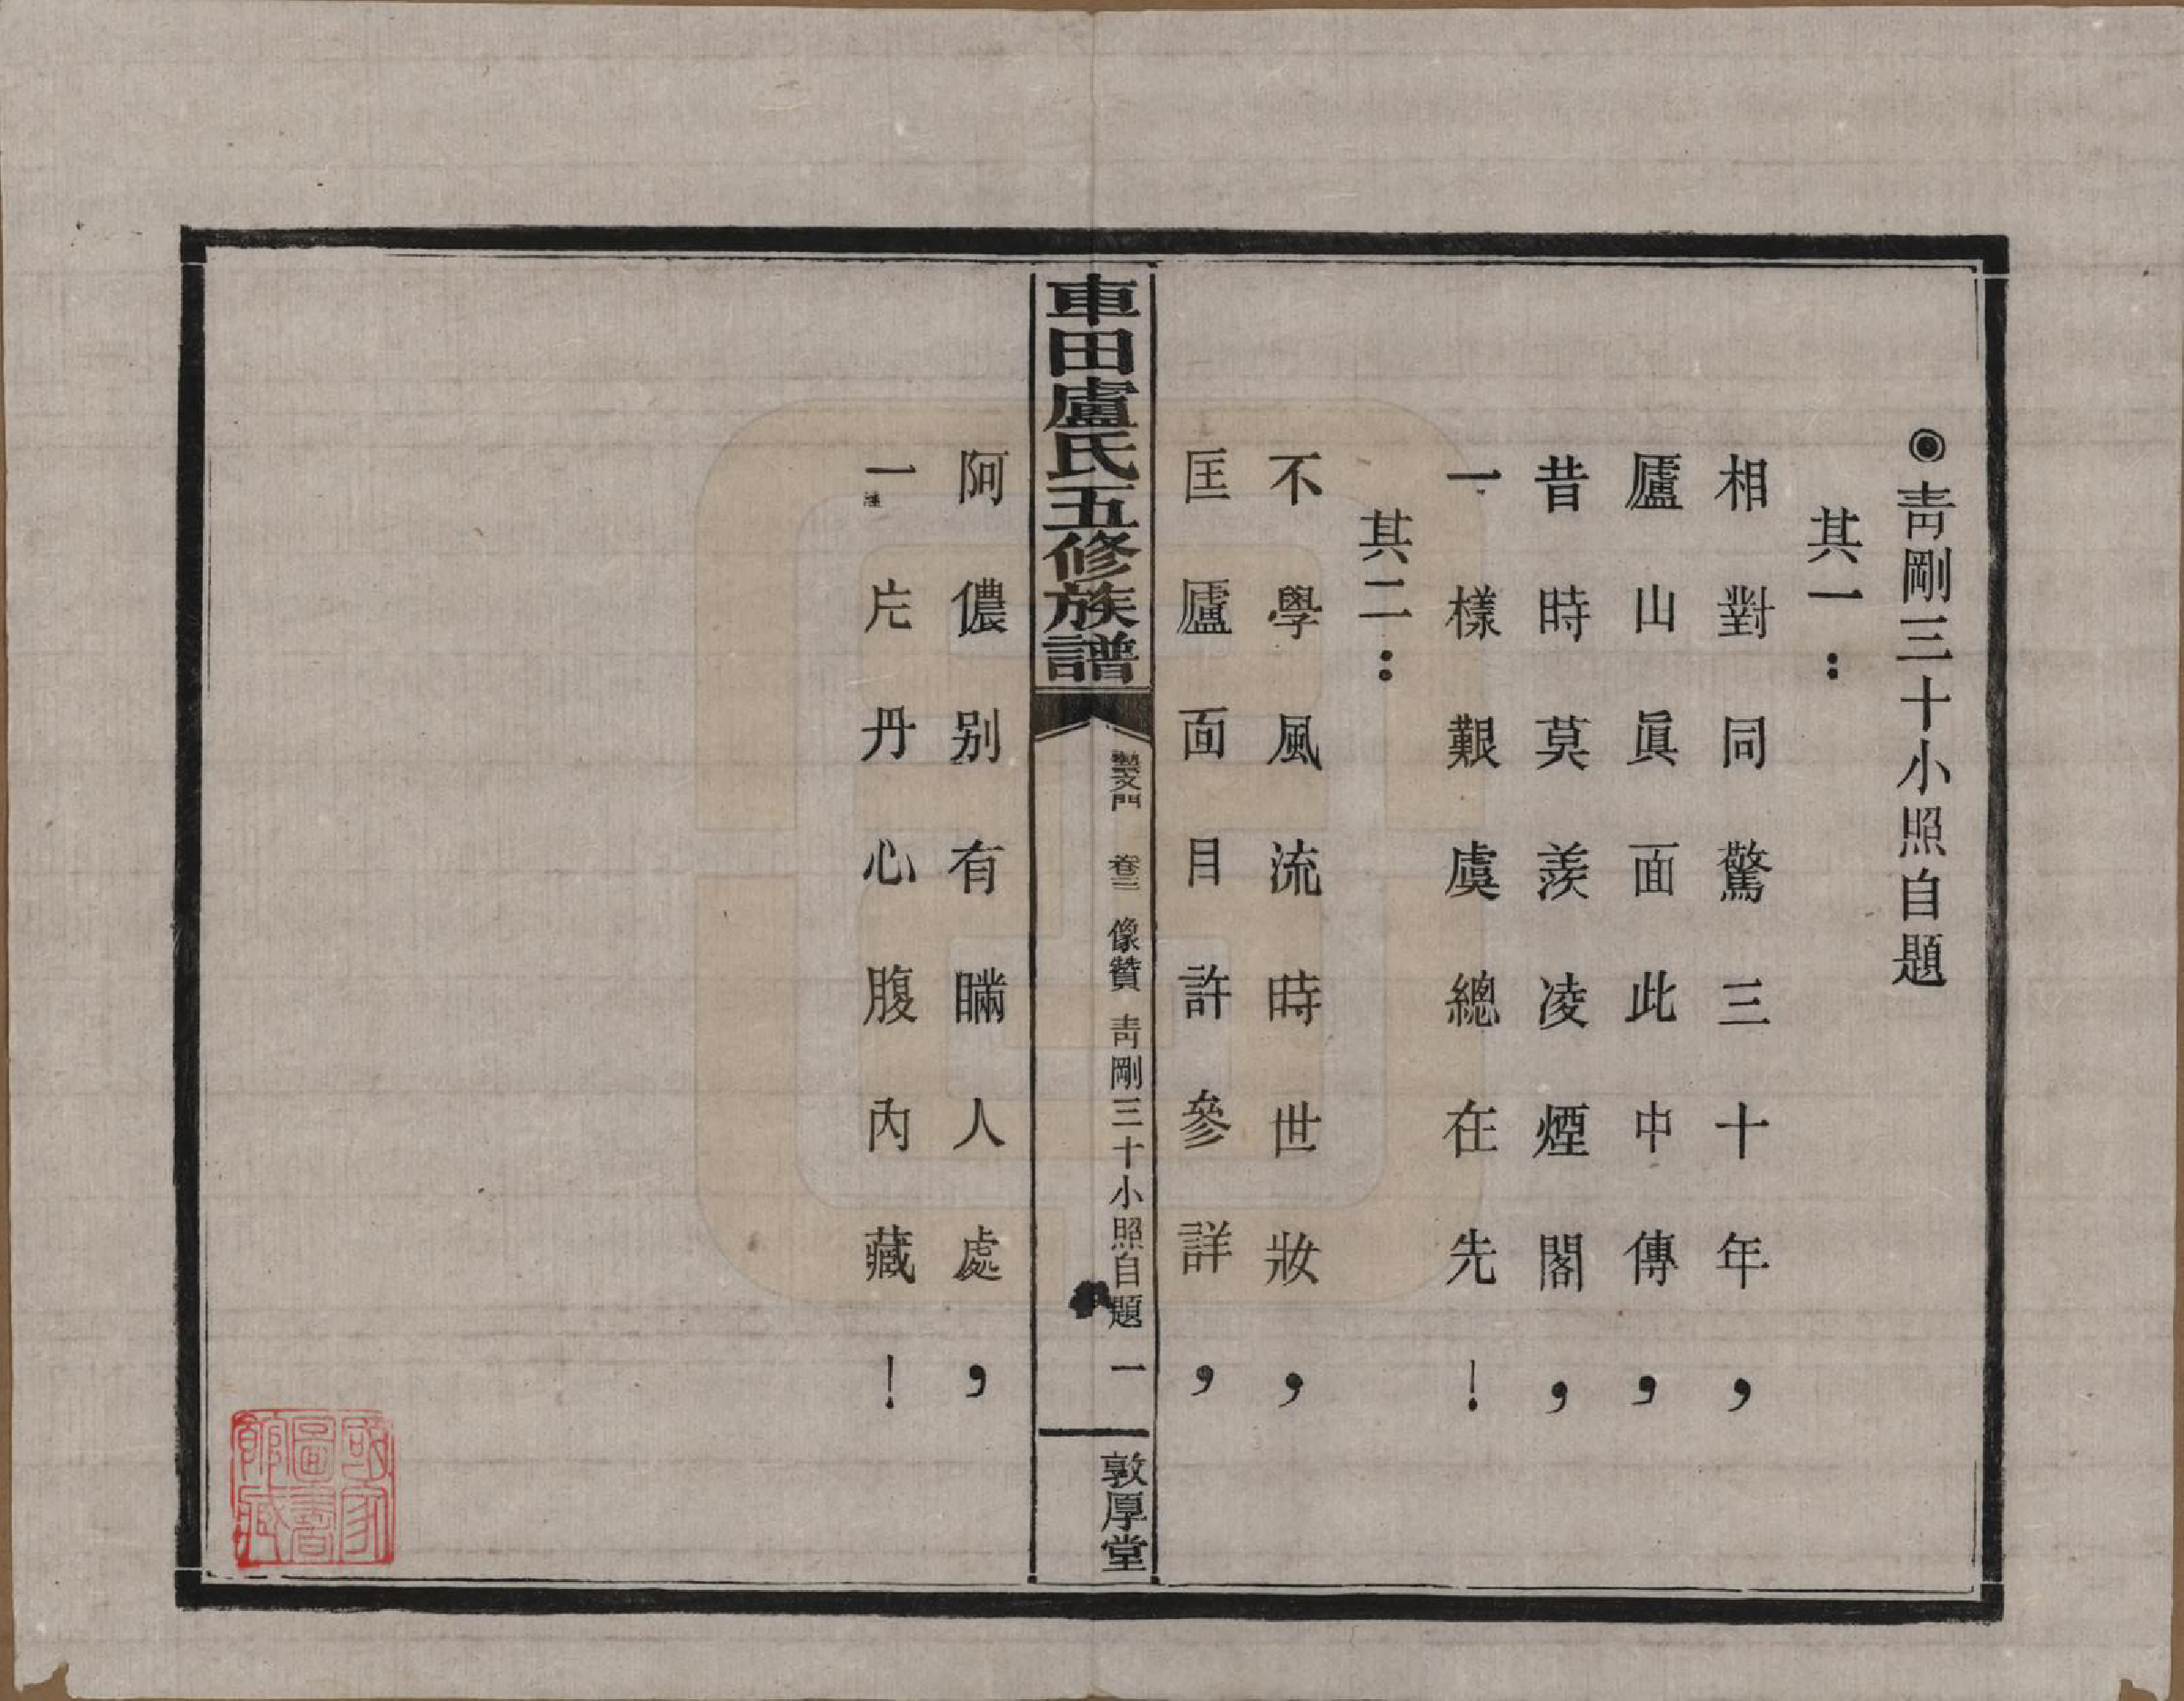 ◉靑剛三十小照自題
其一：
相對同驚三十年，
廬山眞面此中傳，
昔時莫羨凌煙閣，
一樣艱虞總在先！
其二：
不學風流時世妝，
匡廬面目許參詳，
車田盧氏五修族譜
藝文門　卷三　像贊　靑剛三十小照自題　一
敦厚堂
阿儂别有瞞人處，
一片丹心腹內藏！
國家圖書館藏